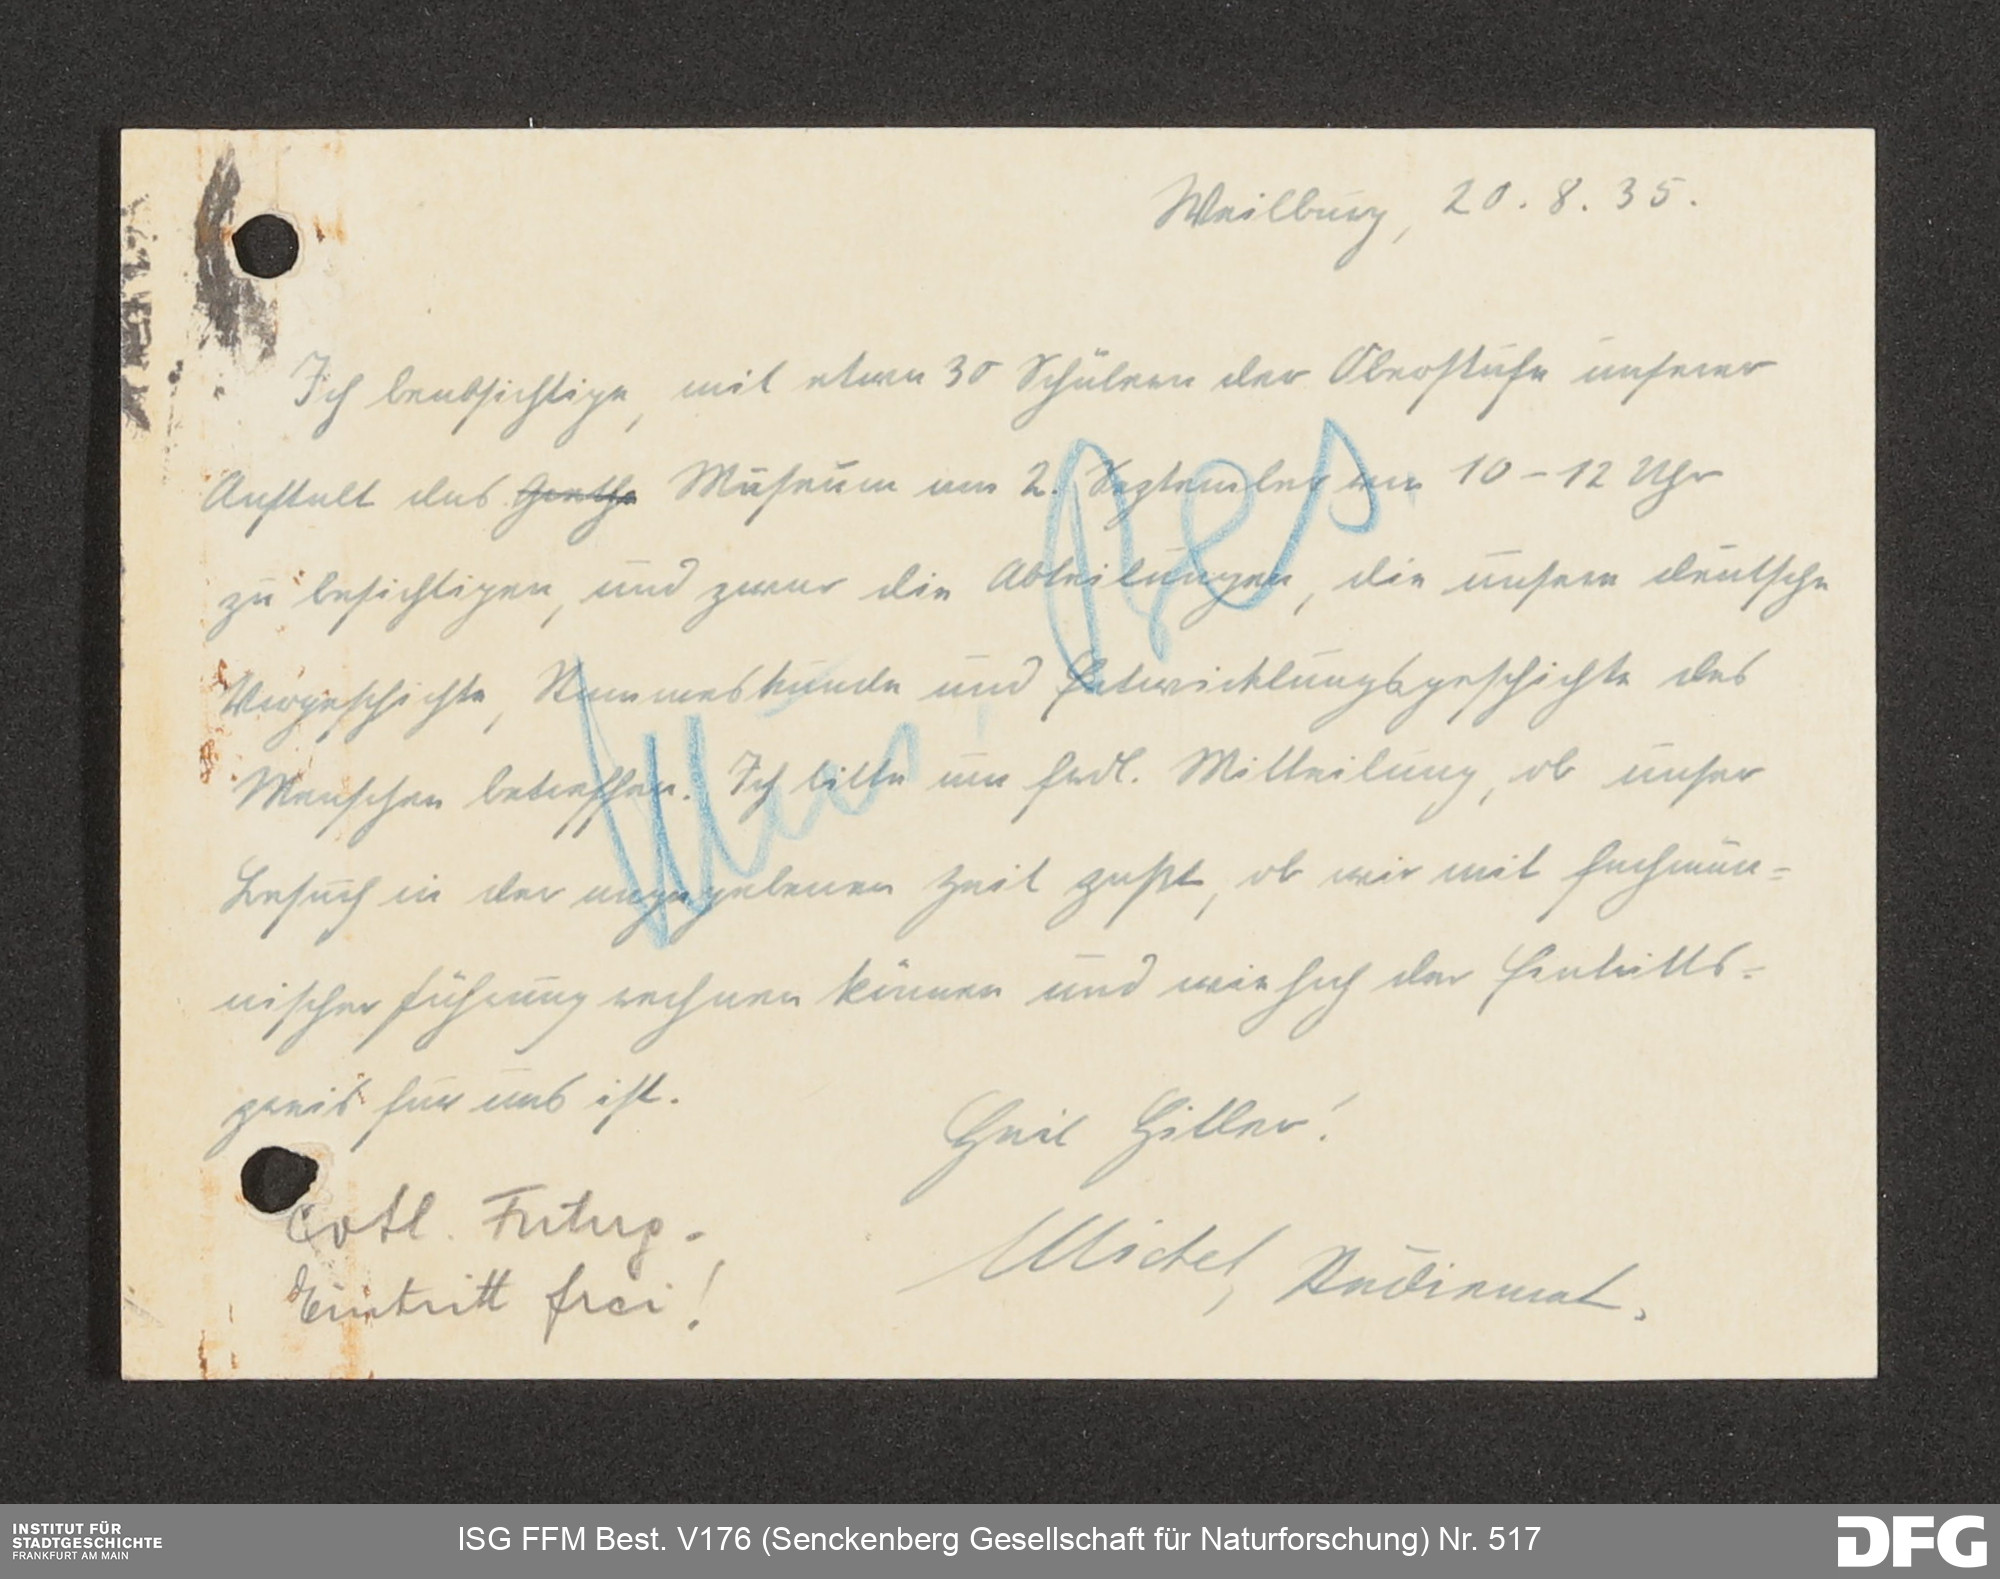 Weilburg, 20. 8. 35.
Ich beabsichtige, mit etwa 30 Schülern der Oberstufe unserer
Anstalt das Goethe Museum am 2. September von 10 – 12 Uhr
zu besichtigen, und zwar die Abteilungen, die unsere deutsche
Vorgeschichte, Stammeskunde und Entwicklungsgeschichte des
Menschen betreffen. Ich bitte um frdl. Mitteilung, ob unser
Besuch in der angegebenen Zeit paßt, ob wir mit fachmän=
nischer Führung rechnen können und wie hoch der Eintritts=
preis für uns ist.
Heil Hitler!
Michel, Studienrat.
Evtl.
Eintritt frei!
Mus.
INSTITUT FÜR
STADTGESCHICHTE
FRANKFURT AM MAIN
ISG FFM Best. V176 (Senckenberg Gesellschaft für Naturforschung) Nr. 517
DFG